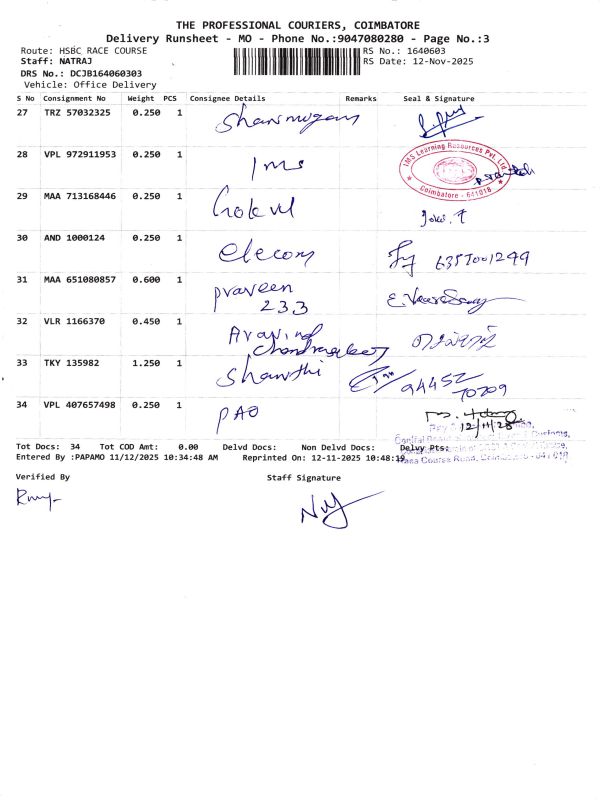 THE PROFESSIONAL COURIERS, COIMBATORE
Delivery Runsheet - MO - Phone No.:9047080280 - Page No.:3
Route: HSBC RACE COURSE
RS No.: 1640603
Staff: NATRAJ
RS Date: 12-Nov-2025
DRS No.: DCJB164060303
Vehicle: Office Delivery
S No Consignment No Weight PCS Consignee Details Remarks Seal & Signature
27 TRZ 57032325 0.250 1 Shanmugam
28 VPL 972911953 0.250 1 Ims
IMS Learning Resources Pvt. Ltd
Coimbatore - 641018
29 MAA 713168446 0.250 1 Gokul
30 AND 1000124 0.250 1 elecom
31 MAA 651080857 0.600 1 praveen
233
32 VLR 1166370 0.450 1 Aravind
Chandrasekar
33 TKY 135982 1.250 1 Shanthi 94452
70209
34 VPL 407657498 0.250 1 PAO
12/11/25
Tot Docs: 34 Tot COD Amt: 0.00 Delvd Docs: Non Delvd Docs: Delvy Pts:
Entered By :PAPAMO 11/12/2025 10:34:48 AM Reprinted On: 12-11-2025 10:48:19
Race Course Road, Coimbatore - 641 018
Verified By
Staff Signature